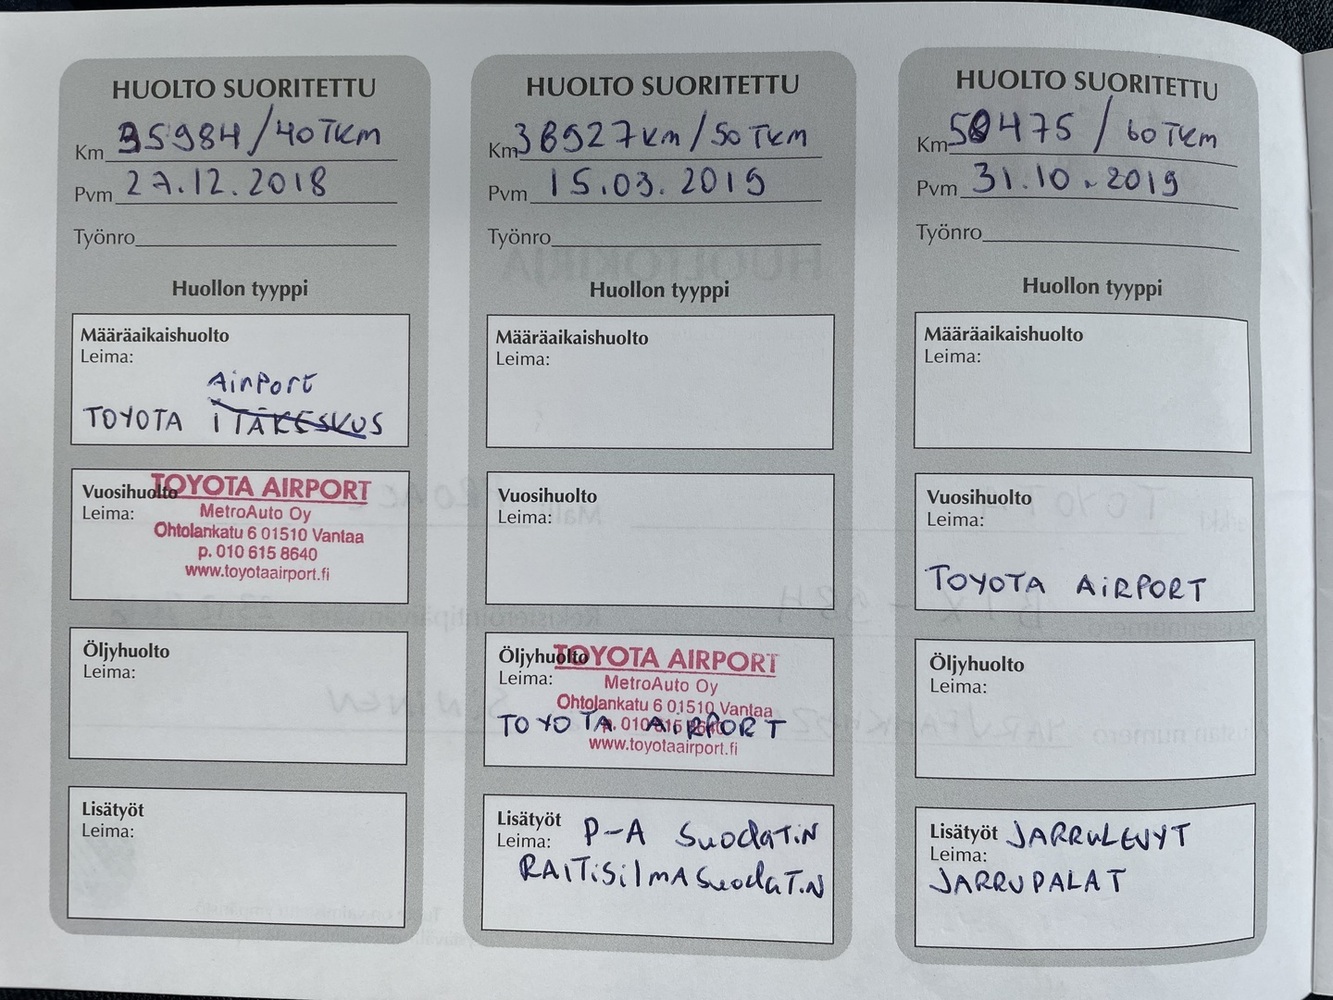 HUOLTO SUORITETTU
Km 35984/40TKM
Pvm 27.12.2018
Työnro
Huollon tyyppi
Määräaikaishuolto
Leima:
AirPort
TOYOTA ITÄKESKUS
Vuosihuolto
Leima:
TOYOTA AIRPORT
MetroAuto Oy
Ohtolankatu 6 01510 Vantaa
p. 010 615 8640
www.toyotaairport.fi
Öljyhuolto
Leima:
Lisätyöt
Leima:
HUOLTO SUORITETTU
Km 38927km/50TKM
Pvm 15.03.2019
Työnro
Huollon tyyppi
Määräaikaishuolto
Leima:
Vuosihuolto
Leima:
Öljyhuolto
Leima:
TOYOTA AIRPORT
MetroAuto Oy
Ohtolankatu 6 01510 Vantaa
p. 010 615 8640
www.toyotaairport.fi
TOYOTA AIRPORT
Lisätyöt P-A SuodaTiN
Leima: RAITiSilmASuodaTiN
HUOLTO SUORITETTU
Km 50475/60TKM
Pvm 31.10.2019
Työnro
Huollon tyyppi
Määräaikaishuolto
Leima:
Vuosihuolto
Leima:
TOYOTA AiRPORT
Öljyhuolto
Leima:
Lisätyöt JARRULEVYT
Leima:
JARRUPALAT